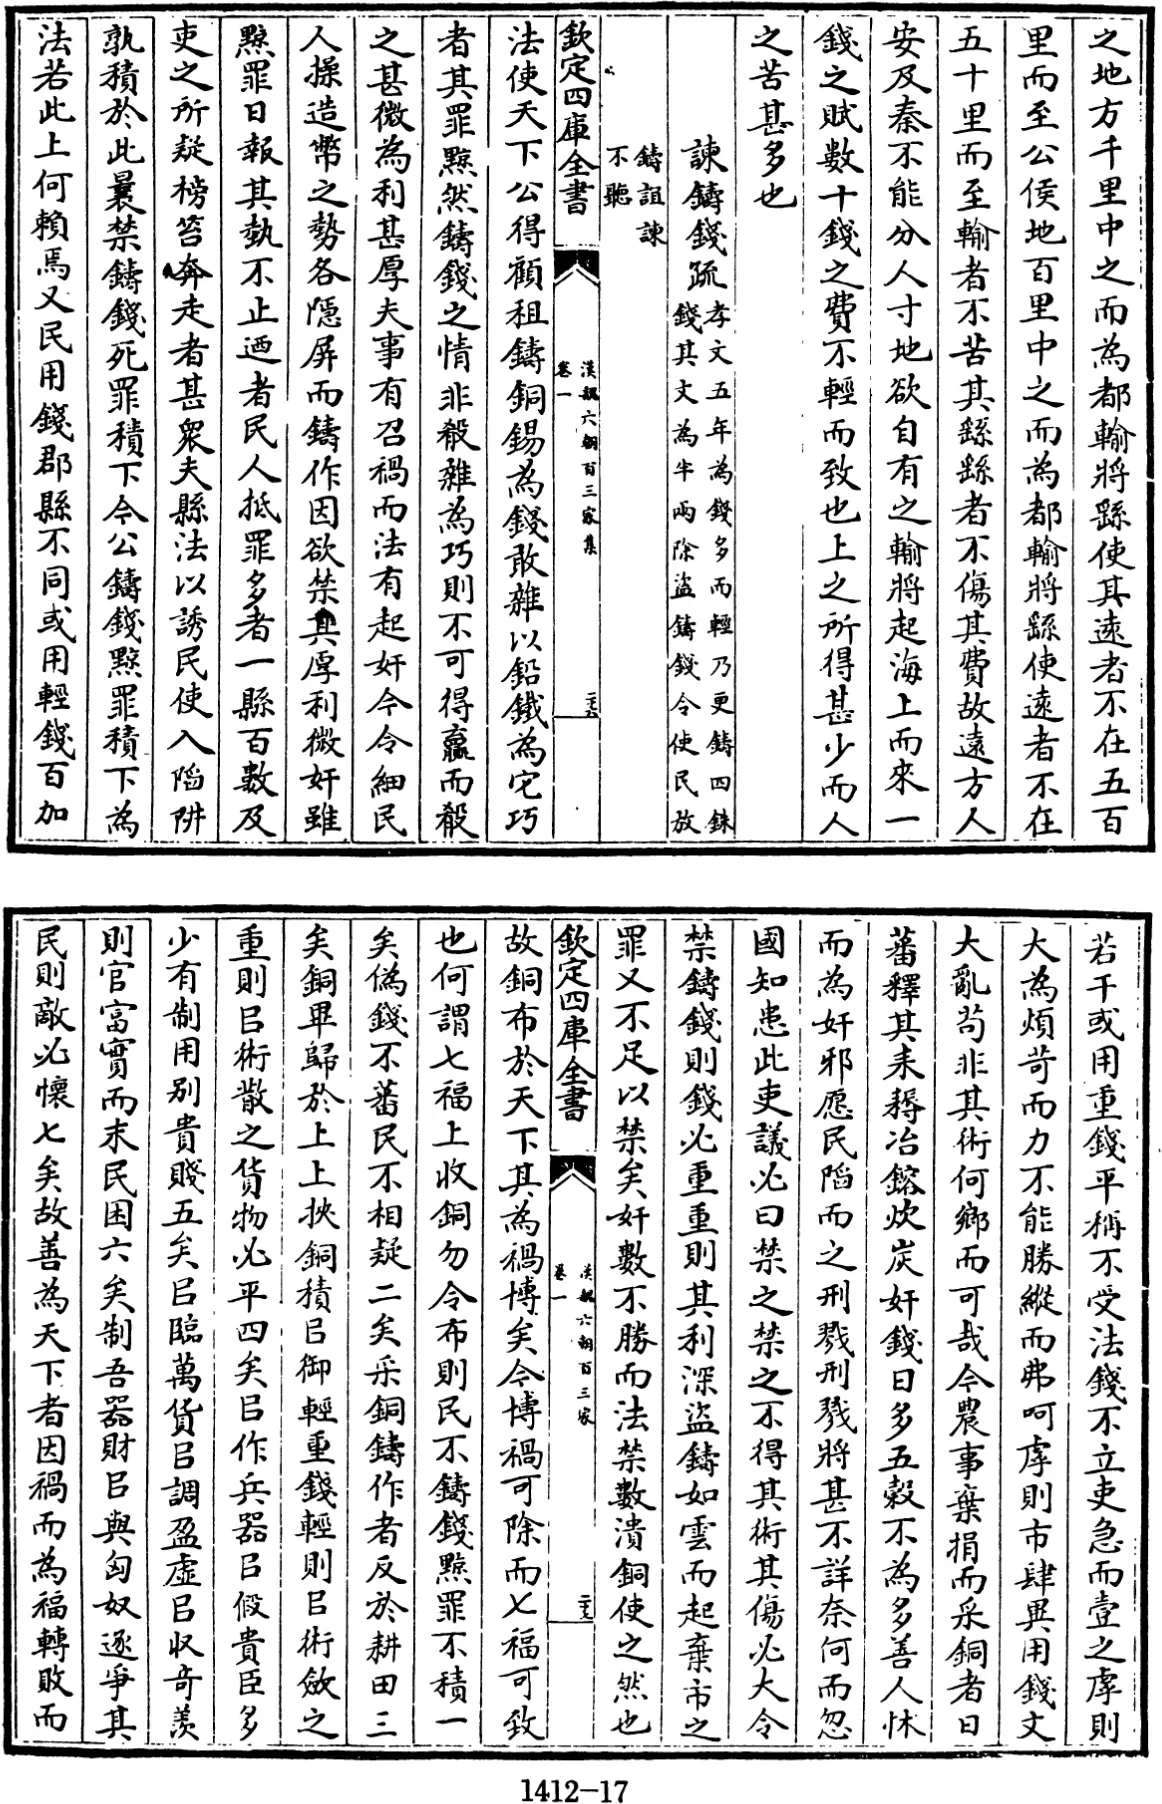 之地方千里中之而為都輸將繇使其遠者不在五百
里而至公侯地百里中之而為都輸將繇使遠者不在
五十里而至輸者不苦其繇繇者不傷其費故遠方人
安及秦不能分人寸地欲自有之輸將起海上而來一
錢之賦數十錢之費不輕而致也上之所得甚少而人
之苦甚多也
諫鑄錢疏
孝文五年為錢多而輕乃更鑄四銖
錢其文為半兩除盜鑄錢令使民放
鑄誼諫
不聽
欽定四庫全書
漢魏六朝百三家集
卷一
二十六
法使天下公得顧租鑄銅錫為錢敢雜以鉛鐵為它巧
者其罪黥然鑄錢之情非殽雜為巧則不可得贏而殽
之甚微為利甚厚夫事有召禍而法有起奸今令細民
人操造幣之勢各隱屏而鑄作因欲禁其厚利微奸雖
黥罪日報其埶不止迺者民人抵罪多者一縣百數及
吏之所疑榜笞奔走者甚衆夫縣法以誘民使入陷阱
孰積於此曩禁鑄錢死罪積下今公鑄錢黥罪積下為
法若此上何賴焉又民用錢郡縣不同或用輕錢百加
若干或用重錢平稱不受法錢不立吏急而壹之虖則
大為煩苛而力不能勝縱而弗呵虖則市肆異用錢文
大亂苟非其術何鄉而可哉今農事棄捐而采銅者日
蕃釋其耒耨冶鎔炊炭奸錢日多五穀不為多善人怵
而為奸邪愿民陷而之刑戮刑戮將甚不詳奈何而忽
國知患此吏議必曰禁之禁之不得其術其傷必大令
禁鑄錢則錢必重重則其利深盜鑄如雲而起棄市之
罪又不足以禁矣奸數不勝而法禁數潰銅使之然也
欽定四庫全書
漢魏六朝百三家
卷一
二十七
故銅布於天下其為禍博矣今博禍可除而七福可致
也何謂七福上收銅勿令布則民不鑄錢黥罪不積一
矣偽錢不蕃民不相疑二矣采銅鑄作者反於耕田三
矣銅畢歸於上上挾銅積㠯御輕重錢輕則㠯術斂之
重則㠯術散之貨物必平四矣㠯作兵器㠯假貴臣多
少有制用别貴賤五矣㠯臨萬貨㠯調盈虛㠯收奇羨
則官富實而末民困六矣制吾器財㠯與匈奴逐爭其
民則敵必懷七矣故善為天下者因禍而為福轉敗而
1412-17